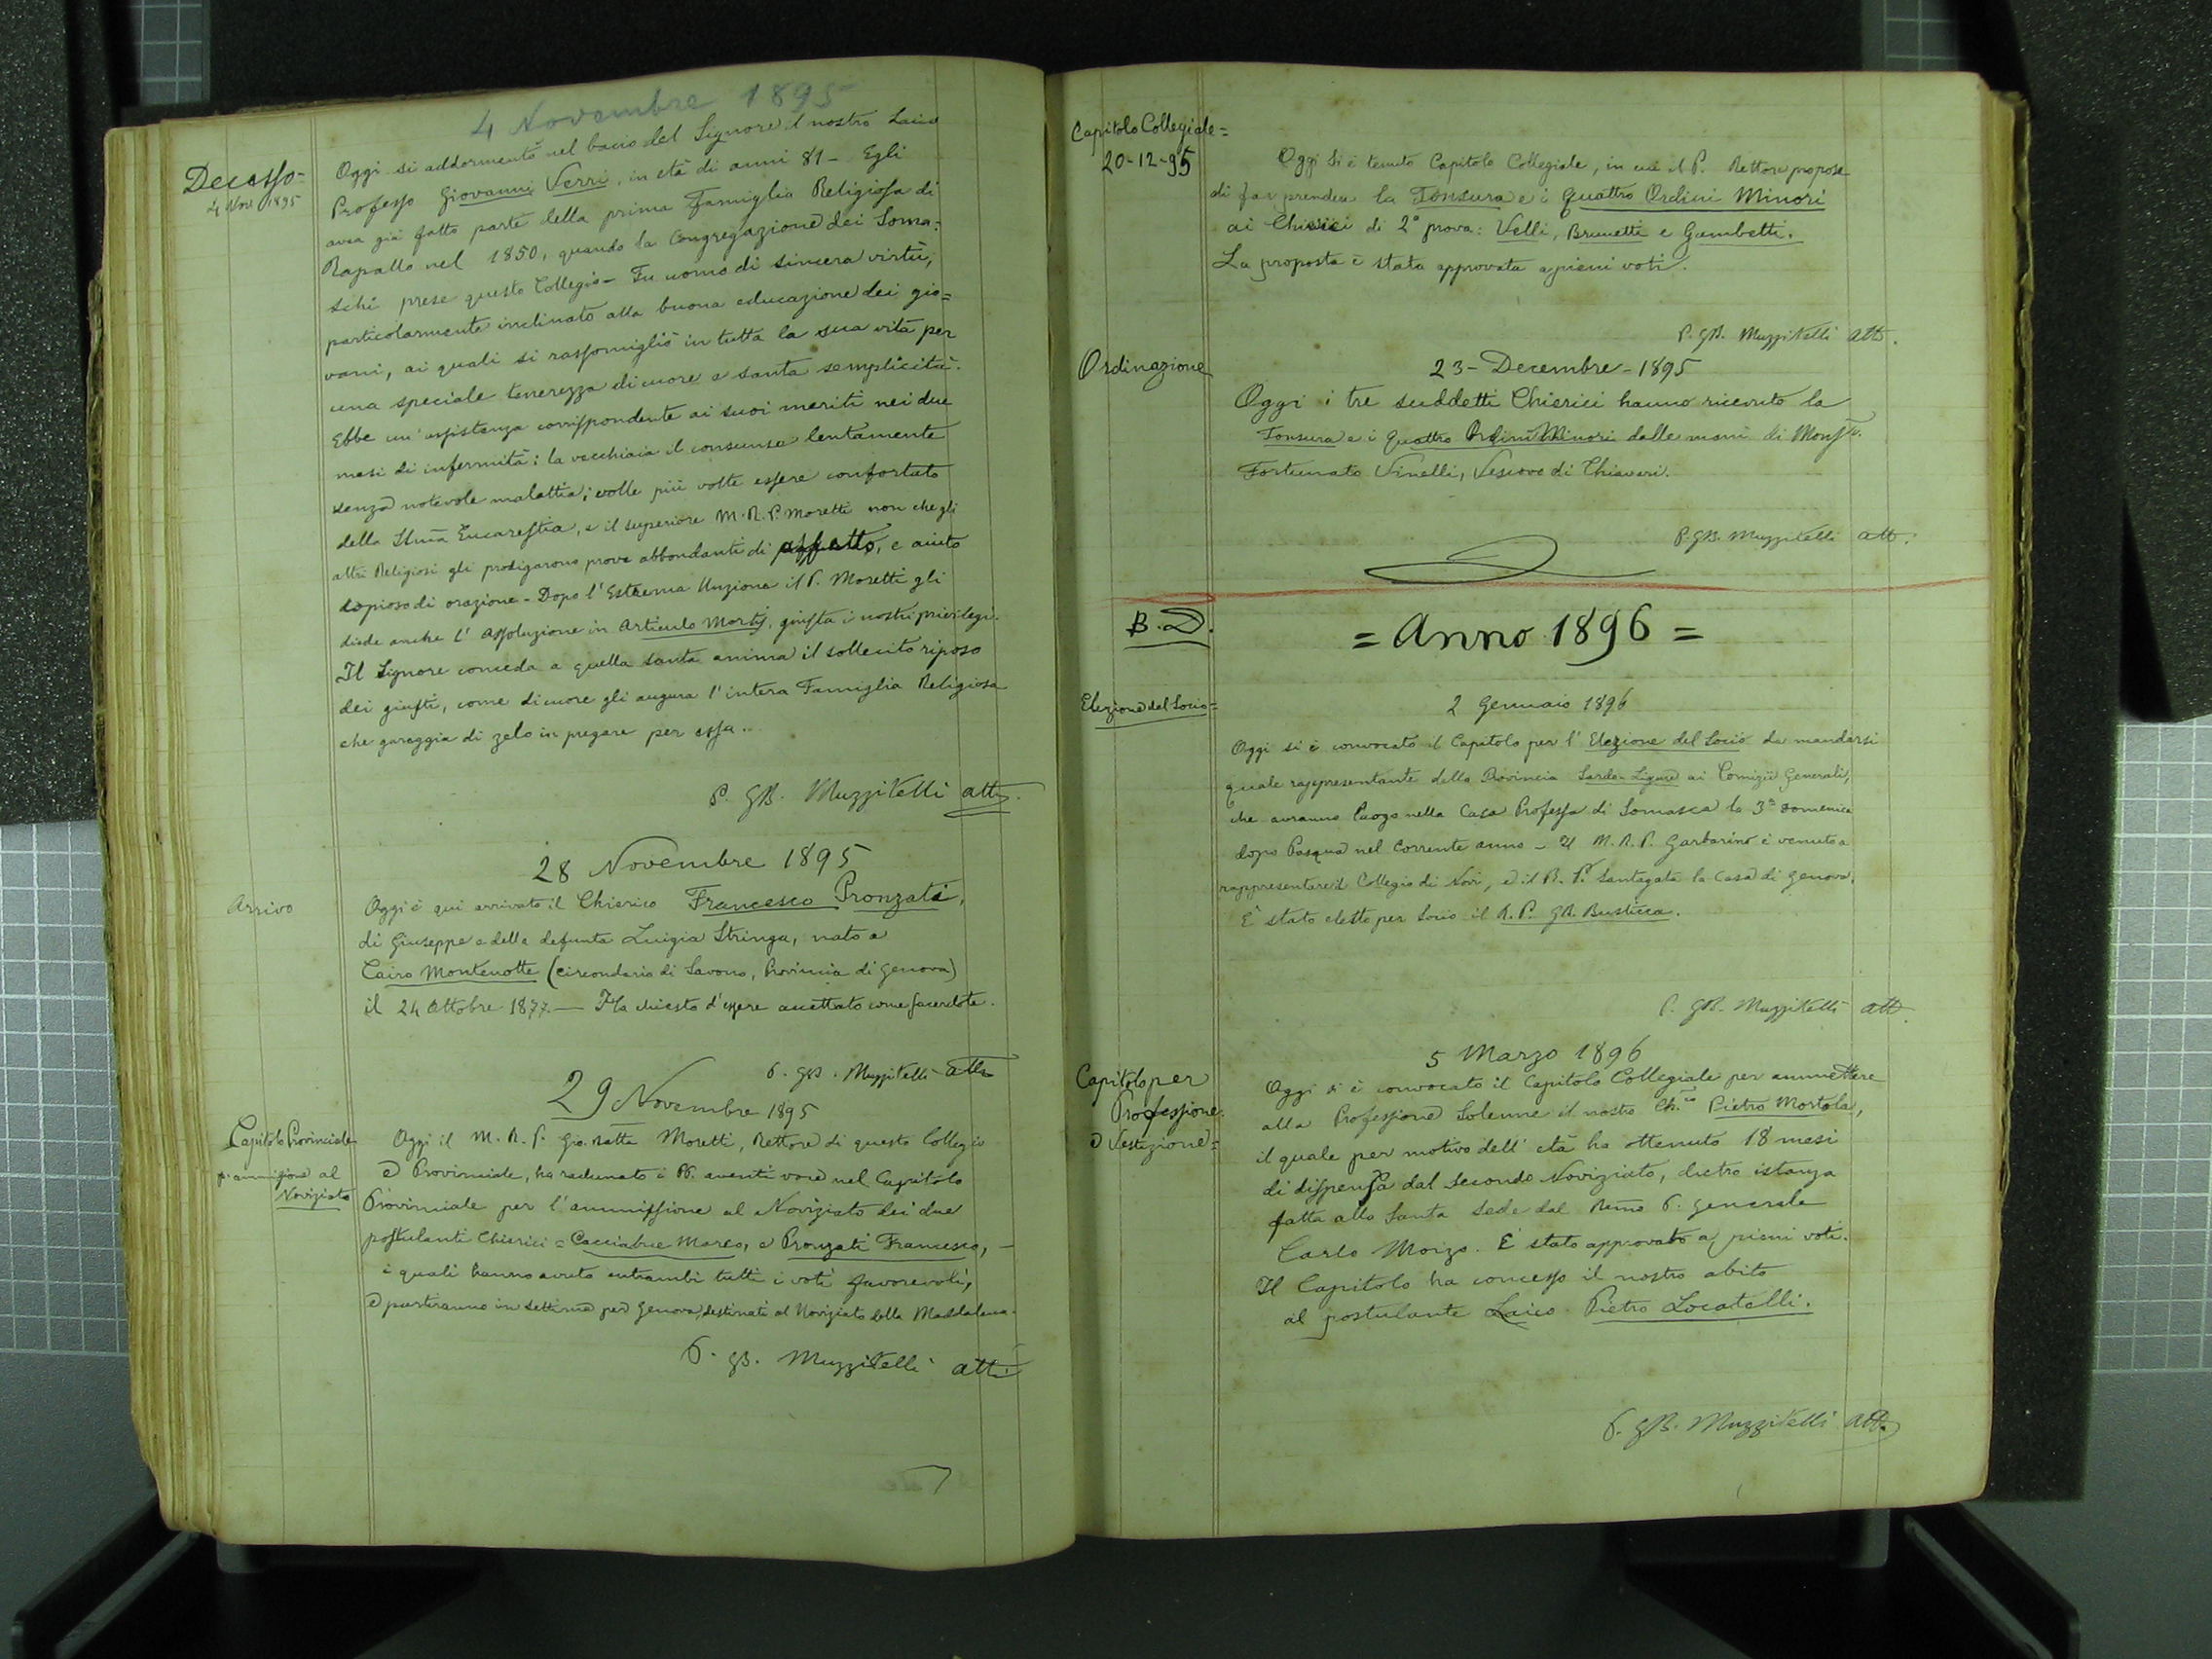 4 Novembre 1895
Decesso-
4 Nov. 1895
Oggi si addormentò nel bacio del Signore il nostro Laico
Professo Giovanni Verri, in età di anni 81- Egli
avea già fatto parte della prima Famiglia Religiosa di
Rapallo nel 1850, quando la Congregazione dei Soma=
schi prese questo Collegio- Fu uomo di sincera virtù,
particolarmente inclinato alla buona educazione dei gio=
vani, ai quali si rassomigliò in tutta la sua vita per
una speciale tenerezza di cuore e santa semplicità.
Ebbe un'assistenza corrispondente ai suoi meriti nei due
mesi di infermità: la vecchiaia il consunse lentamente
senza notevole malattia; volle più volte essere confortato
della SSma Eucarestia, e il superiore M.R.P. Moretti non che gli
altri Religiosi gli prodigarono prove abbondanti di affetto, e aiuto
copioso di orazione- Dopo l'Estrema Unzione il P. Moretti gli
diede anche l'Assoluzione in Articulo Mortis, giusta i nostri privilegi.
Il Signore conceda a quella santa anima il sollecito riposo
dei giusti, come di cuore gli augura l'intera Famiglia Religiosa
che gareggia di zelo in pregare per essa..
P. GB. Muzzitelli att.
28 Novembre 1895
Arrivo
Oggi è qui arrivato il Chierico Francesco Pronzati,
di Giuseppe e della defunta Luigia Stringa, nato a
Cairo Montenotte (circondario di Savona, Provincia di Genova)
il 24 Ottobre 1877.— Ha chiesto d'essere accettato come sacerdote.
P. GB. Muzzitelli att
29 Novembre 1895
Capitolo Provinciale
p. ammissione al
Noviziato
Oggi il M. R. P. Gio. Batta Moretti, Rettore di questo Collegio
e Provinciale, ha radunato i PP. aventi voce nel Capitolo
Provinciale per l'ammissione al Noviziato dei due
postulanti Chierici = Cacciabue Marco, e Pronzati Francesco, -
i quali hanno avuto entrambi tutti i voti favorevoli,
e partiranno in settima per Genova, destinati al Noviziato della Maddalena.
P. GB. Muzzitelli att
Capitolo Collegiale=
20-12-95
Oggi Si è tenuto Capitolo Collegiale, in cui il P. Rettore propose
di far prendere la Tonsura e i Quattro Ordini Minori
ai Chierici di 2ª prova: Velli, Brunetti e Gambetti.
La proposta è stata approvata a pieni voti.
P. GB. Muzzitelli att.
Ordinazione
23-Decembre-1895
Oggi i tre suddetti Chierici hanno ricevuto la
Tonsura e i Quattro Ordini Minori dalle mani di Monsr.
Fortunato Vinelli, Vescovo di Chiavari.
P. GB. Muzzitelli att.
B.D.
= Anno 1896 =
Elezione del Socio=
2 Gennaio 1896
Oggi si è convocato il Capitolo per l'Elezione del Socio da mandarsi
quale rappresentante della Provincia Sardo-Ligure ai Comizii Generali,
che avranno luogo nella Casa Professa di Somasca la 3ª domenica
dopo Pasqua nel corrente anno - Il M.R.P. Garbarino è venuto a
rappresentare il Collegio di Novi, e il R. P. Santagata la Casa di Genova.
È stato eletto per Socio il R. P. GB. Busticca.
P. GB. Muzzitelli att.
5 Marzo 1896
Capitolo per
Professione
e Vestizione=
Oggi si è convocato il Capitolo Collegiale per ammettere
alla Professione Solenne il nostro Ch.co Pietro Mortola,
il quale per motivo dell'età ha ottenuto 18 mesi
di dispensa dal secondo Noviziato, dietro istanza
fatta alla Santa Sede dal Rmo P. Generale
Carlo Moizo. È stato approvato a pieni voti.
Il Capitolo ha concesso il nostro abito
al postulante Laico Pietro Locatelli.
P. GB. Muzzitelli att.